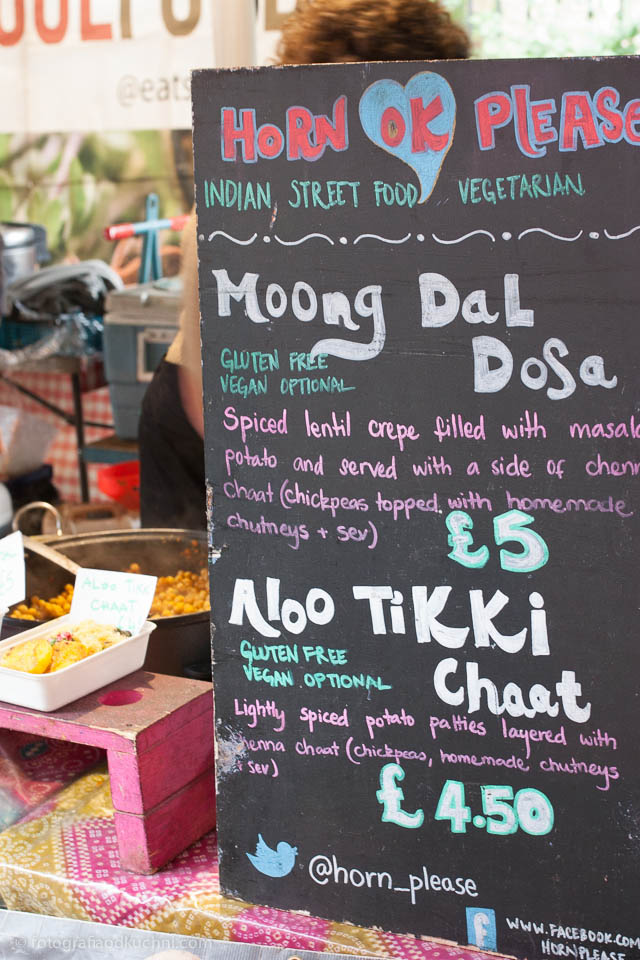 @eats
HORN OK PLEASE
INDIAN STREET FOOD VEGETARIAN
MOONG DAL
DOSA
GLUTEN FREE
VEGAN OPTIONAL
Spiced lentil crepe filled with masala
potato and served with a side of chenna
chaat (chickpeas topped with homemade
chutneys + sev)
£5
ALOO TiKKi
CHaat
GLUTEN FREE
VEGAN OPTIONAL
Lightly spiced potato patties layered with
henna chaat (chickpeas, homemade chutneys
+ sev)
£4.50
@horn_please
WWW.FACEBOOK.COM
HORNPLEASE
ALOO TIKKI
CHAAT
fotografiaodkuchni.com